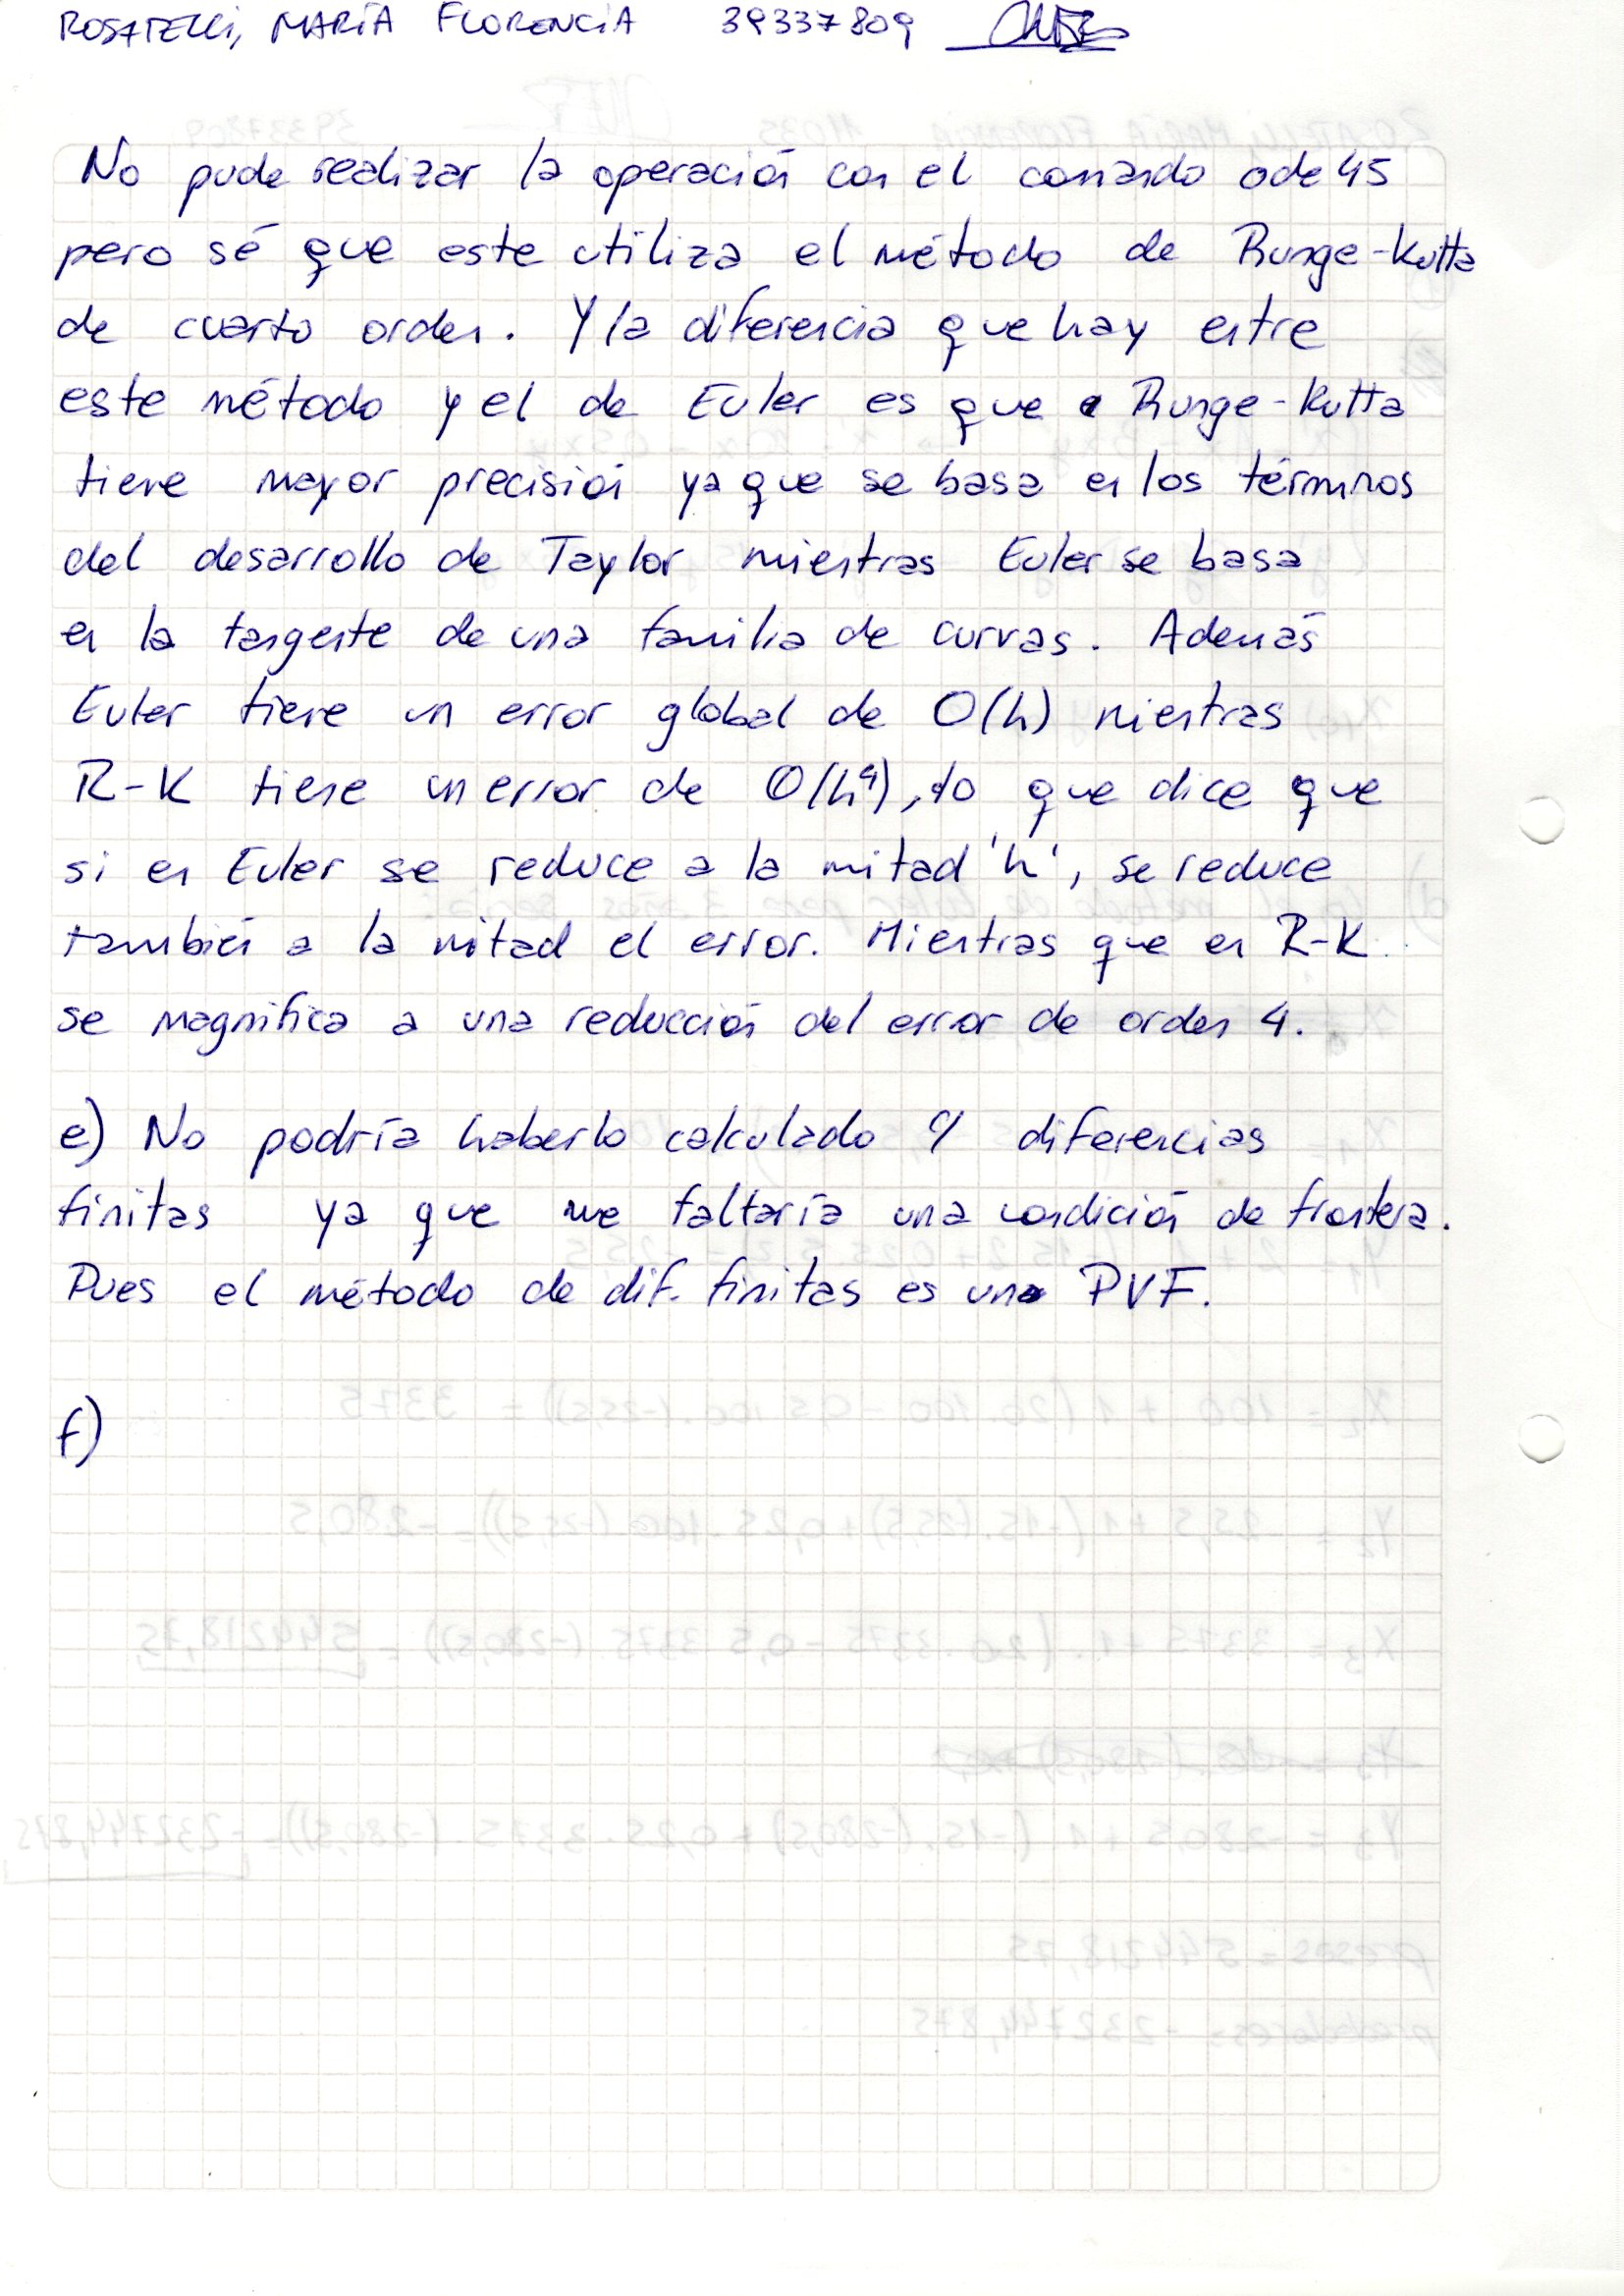 ROSATELLI, MARÍA FLORENCIA 39337809
No pude realizar la operación con el comando ode 45
pero sé que este utiliza el método de Runge-Kutta
de cuarto orden. Y la diferencia que hay entre
este método y el de Euler es que Runge-Kutta
tiene mayor precisión ya que se basa en los términos
del desarrollo de Taylor mientras Euler se basa
en la tangente de una familia de curvas. Además
Euler tiene un error global de O(h) mientras
R-K tiene un error de O(h⁴), lo que dice que
si en Euler se reduce a la mitad 'h', se reduce
también a la mitad el error. Mientras que en R-K
se magnifica a una reducción del error de orden 4.
e) No podría haberlo calculado diferencias
finitas ya que me faltaría una condición de frontera.
Pues el método de dif. finitas es un PVF.
f)